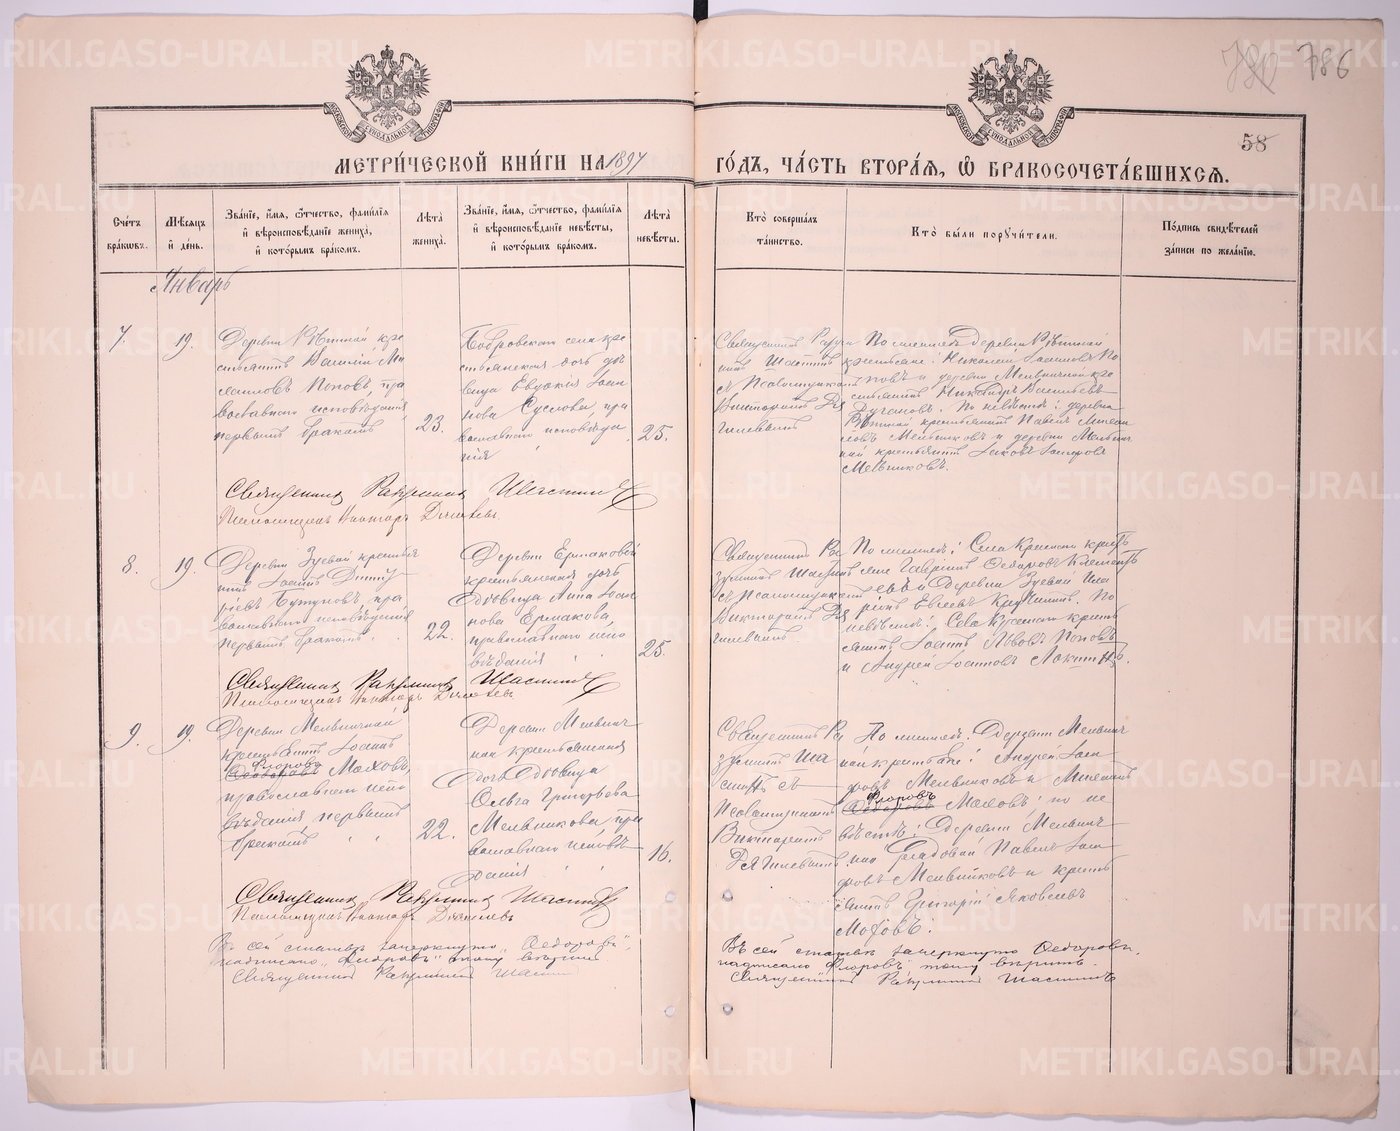 786
58
МЕТРИ́ЧЕСКОЙ КНИ́ГИ НА 1897
ГО́ДЪ, ЧА́СТЬ ВТОРА́Я, Ѿ БРАКОСОЧЕТА́ВШИХСЯ.
Сче́тъ бра́ковъ.
Мѣ́сяцъ и҆ де́нь.
Зва́нїе, и҆́мя, ѻ҆́тчество, фами́лїя и҆ вѣроисповѣ́данїе жениха̀, и҆ кото́рымъ бра́комъ.
Лѣта̀ жениха̀.
Зва́нїе, и҆́мя, ѻ҆́тчество, фами́лїя и҆ вѣроисповѣ́данїе невѣ́сты, и҆ кото́рымъ бра́комъ.
Лѣта̀ невѣ́сты.
Кто̀ соверша́лъ та́инство.
Кто̀ бы́ли поручи́тели.
По́дпись свидѣ́телей за́писи по жела́нїю.
Январь
7.
19.
Деревни
кре
стьянинъ Василій Ми
хаиловъ Поповъ, пра
вославнаго исповѣданія
первымъ бракомъ
23.
Бобровскаго села кре
стьянская дочь дѣ
вица Евдокія Іоан
нова Суслова, пра
вославнаго исповѣда
нія
25.
Священникъ
ній Шастинъ
съ Псаломщикомъ
Викторомъ Дя
гилевымъ
По женихѣ: Деревни
крестьяне: Николай Іоанновъ По
повъ и деревни Мельничной кре
стьянинъ Никаноръ Васильевъ
По невѣстѣ: деревни
крестьянинъ Павелъ
Мельниковъ и деревни Мельнич
ной крестьянинъ Іаковъ
Мельниковъ.
Священникъ Шастинъ
Псаломщикъ Викторъ Дягилевъ
8.
19.
Деревни Зуевой крестья
нинъ Іоаннъ Димит
ріевъ пра
вославнаго исповѣданія
первымъ бракомъ
22.
Деревни Ермаковой
крестьянская дочь
дѣвица Анна Іоан
нова Ермакова,
православнаго испо
вѣданія
25.
Священникъ
Шастинъ
съ Псаломщикомъ
Викторомъ Дя
гилевымъ
По женихѣ: Села
крестьянинъ Гавріилъ Ѳедоровъ
и деревни Зуевой
Евсеевъ По
невѣстѣ: Села кресть
янинъ Іоаннъ Львовъ Поповъ
и Андрей Іоанновъ
Священникъ Шастинъ
Псаломщикъ Викторъ Дягилевъ
9.
19.
Деревни Мельничной
крестьянинъ Іоаннъ
Флоровъ
Ѳедоровъ Моховъ,
православнаго испо
вѣданія первымъ
бракомъ
22.
Деревни Мельнич
ной крестьянская
дочь дѣвица
Ольга Григорьева
Мельникова, пра
вославнаго исповѣ
данія
16.
Священникъ
Ша
стинъ съ
Псаломщикомъ
Викторомъ
Дягилевымъ
По женихѣ: Деревни Мельнич
ной крестьяне: Андрей
Мельниковъ и
Флоровъ
Ѳедоровъ Моховъ; по не
вѣстѣ: деревни Мельнич
ной рядовой Павелъ
Мельниковъ и кресть
янинъ Григорій Яковлевъ
Моховъ.
Священникъ Шастинъ
Псаломщикъ Викторъ Дягилевъ
Въ сей статьѣ зачеркнуто „Ѳедоровъ",
надписано „Флоровъ" тому вѣрить.
Священникъ Шастинъ
Въ сей статьѣ зачеркнуто Ѳедоровъ
надписано Флоровъ тому вѣрить.
Священникъ Шастинъ
METRIKI.GASO-URAL.RU